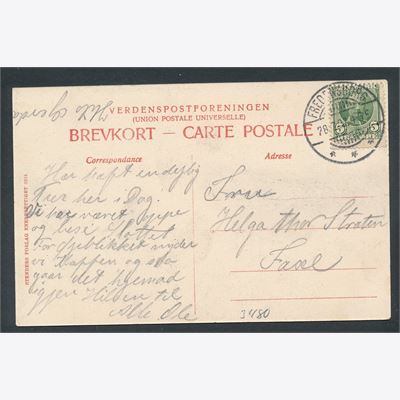 VERDENSPOSTFORENINGEN
(UNION POSTALE UNIVERSELLE)
BREVKORT — CARTE POSTALE
Correspondance
Adresse
FREDENSBORG
28.
5 5
Har haft en dejlig
Tur her i Dag.
Vi har været oppe
og bese Slottet
For Øjeblikket nyder
vi Kaffen og saa
gaar det hjemad
igen Hilsen til
Alle Ole
Frue
Helga thor Straten
Faxe
3480
STENDERS FORLAG ENEBERETTIGET